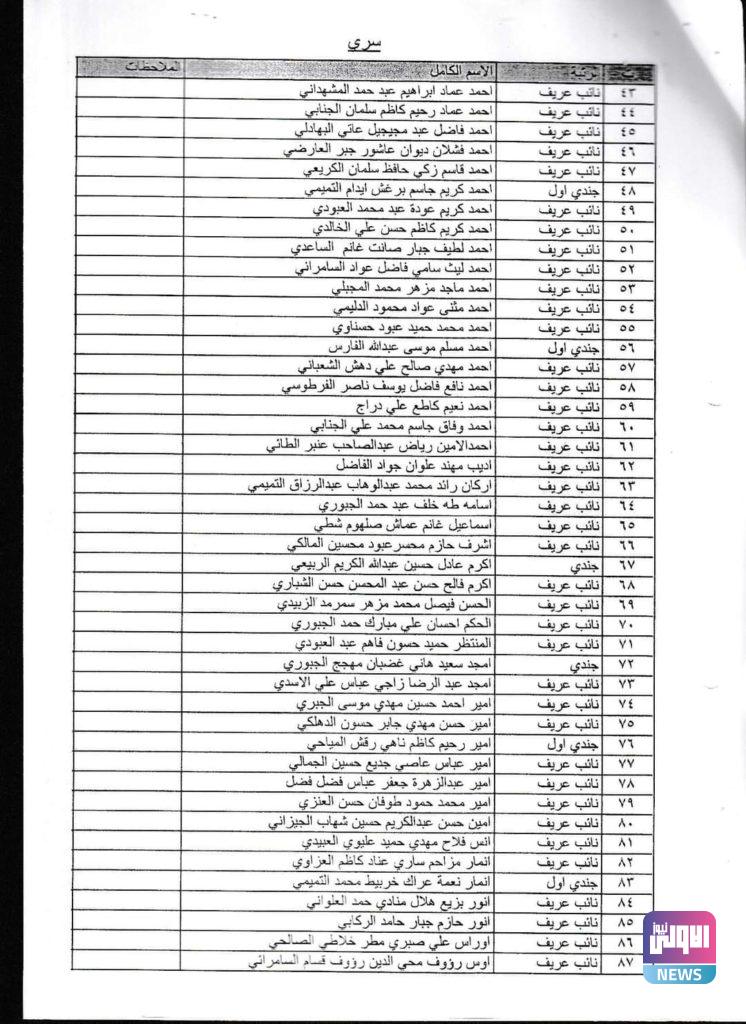 سري
ت الرتبة الاسم الكامل الملاحظات
٤٣ نائب عريف احمد عماد ابراهيم عبد حمد المشهداني
٤٤ نائب عريف احمد عماد رحيم كاظم سلمان الجنابي
٤٥ نائب عريف احمد فاضل عبد مجيجيل عاتي البهادلي
٤٦ نائب عريف احمد فشلان ديوان عاشور جبر العارضي
٤٧ نائب عريف احمد قاسم زكي حافظ سلمان الكريعي
٤٨ جندي اول احمد كريم جاسم برغش ايدام التميمي
٤٩ نائب عريف احمد كريم عودة عبد محمد العبودي
٥٠ نائب عريف احمد كريم كاظم حسن علي الخالدي
٥١ نائب عريف احمد لطيف جبار صانت غانم الساعدي
٥٢ نائب عريف احمد ليث سامي فاضل عواد السامرائي
٥٣ نائب عريف احمد ماجد مزهر محمد المجبلي
٥٤ نائب عريف احمد مثنى عواد محمود الدليمي
٥٥ نائب عريف احمد محمد حميد عبود حسناوي
٥٦ جندي اول احمد مسلم موسى عبدالله الفارس
٥٧ نائب عريف احمد مهدي صالح علي دهش الشعباني
٥٨ نائب عريف احمد نافع فاضل يوسف ناصر الفرطوسي
٥٩ نائب عريف احمد نعيم كاطع علي دراج
٦٠ نائب عريف احمد وفاق جاسم محمد علي الجنابي
٦١ نائب عريف احمدالامين رياض عبدالصاحب عنبر الطائي
٦٢ نائب عريف اديب مهند علوان جواد الفاضل
٦٣ نائب عريف اركان رائد محمد عبدالوهاب عبدالرزاق التميمي
٦٤ نائب عريف اسامه طه خلف عبد حمد الجبوري
٦٥ نائب عريف اسماعيل غانم عماش صلهوم شطي
٦٦ نائب عريف اشرف حازم محسرعبود محسين المالكي
٦٧ جندي اكرم عادل حسين عبدالله الكريم الربيعي
٦٨ نائب عريف اكرم فالح حسن عبد المحسن حسن الشباري
٦٩ نائب عريف الحسن فيصل محمد مزهر سمرمد الزبيدي
٧٠ نائب عريف الحكم احسان علي مبارك حمد الجبوري
٧١ نائب عريف المنتظر حميد حسون فاهم عبد العبودي
٧٢ جندي امجد سعيد هاني غضبان مهجج الجبوري
٧٣ نائب عريف امجد عبد الرضا زاجي عباس علي الاسدي
٧٤ نائب عريف امير احمد حسين مهدي موسى الجبري
٧٥ نائب عريف امير حسن مهدي جابر حسون الدهلكي
٧٦ جندي اول امير رحيم كاظم ناهي رقش المياحي
٧٧ نائب عريف امير عباس عاصي جديع حسين الجمالي
٧٨ نائب عريف امير عبدالزهرة جعفر عباس فضل فضل
٧٩ نائب عريف امير محمد حمود طوفان حسن العنزي
٨٠ نائب عريف امين حسن عبدالكريم حسين شهاب الجيزاني
٨١ نائب عريف انس فلاح مهدي حميد عليوي العبيدي
٨٢ نائب عريف انمار مزاحم ساري عناد كاظم العزاوي
٨٣ جندي اول انمار نعمة عراك خريبط محمد التميمي
٨٤ نائب عريف انور بزيع هلال منادي حمد العلواني
٨٥ نائب عريف انور حازم جبار حامد الركابي
٨٦ نائب عريف اوراس علي صبري مطر خلاطي الصالحي
٨٧ نائب عريف اوس رؤوف محي الدين رؤوف قسام السامرائي
الاولى نيوز
NEWS